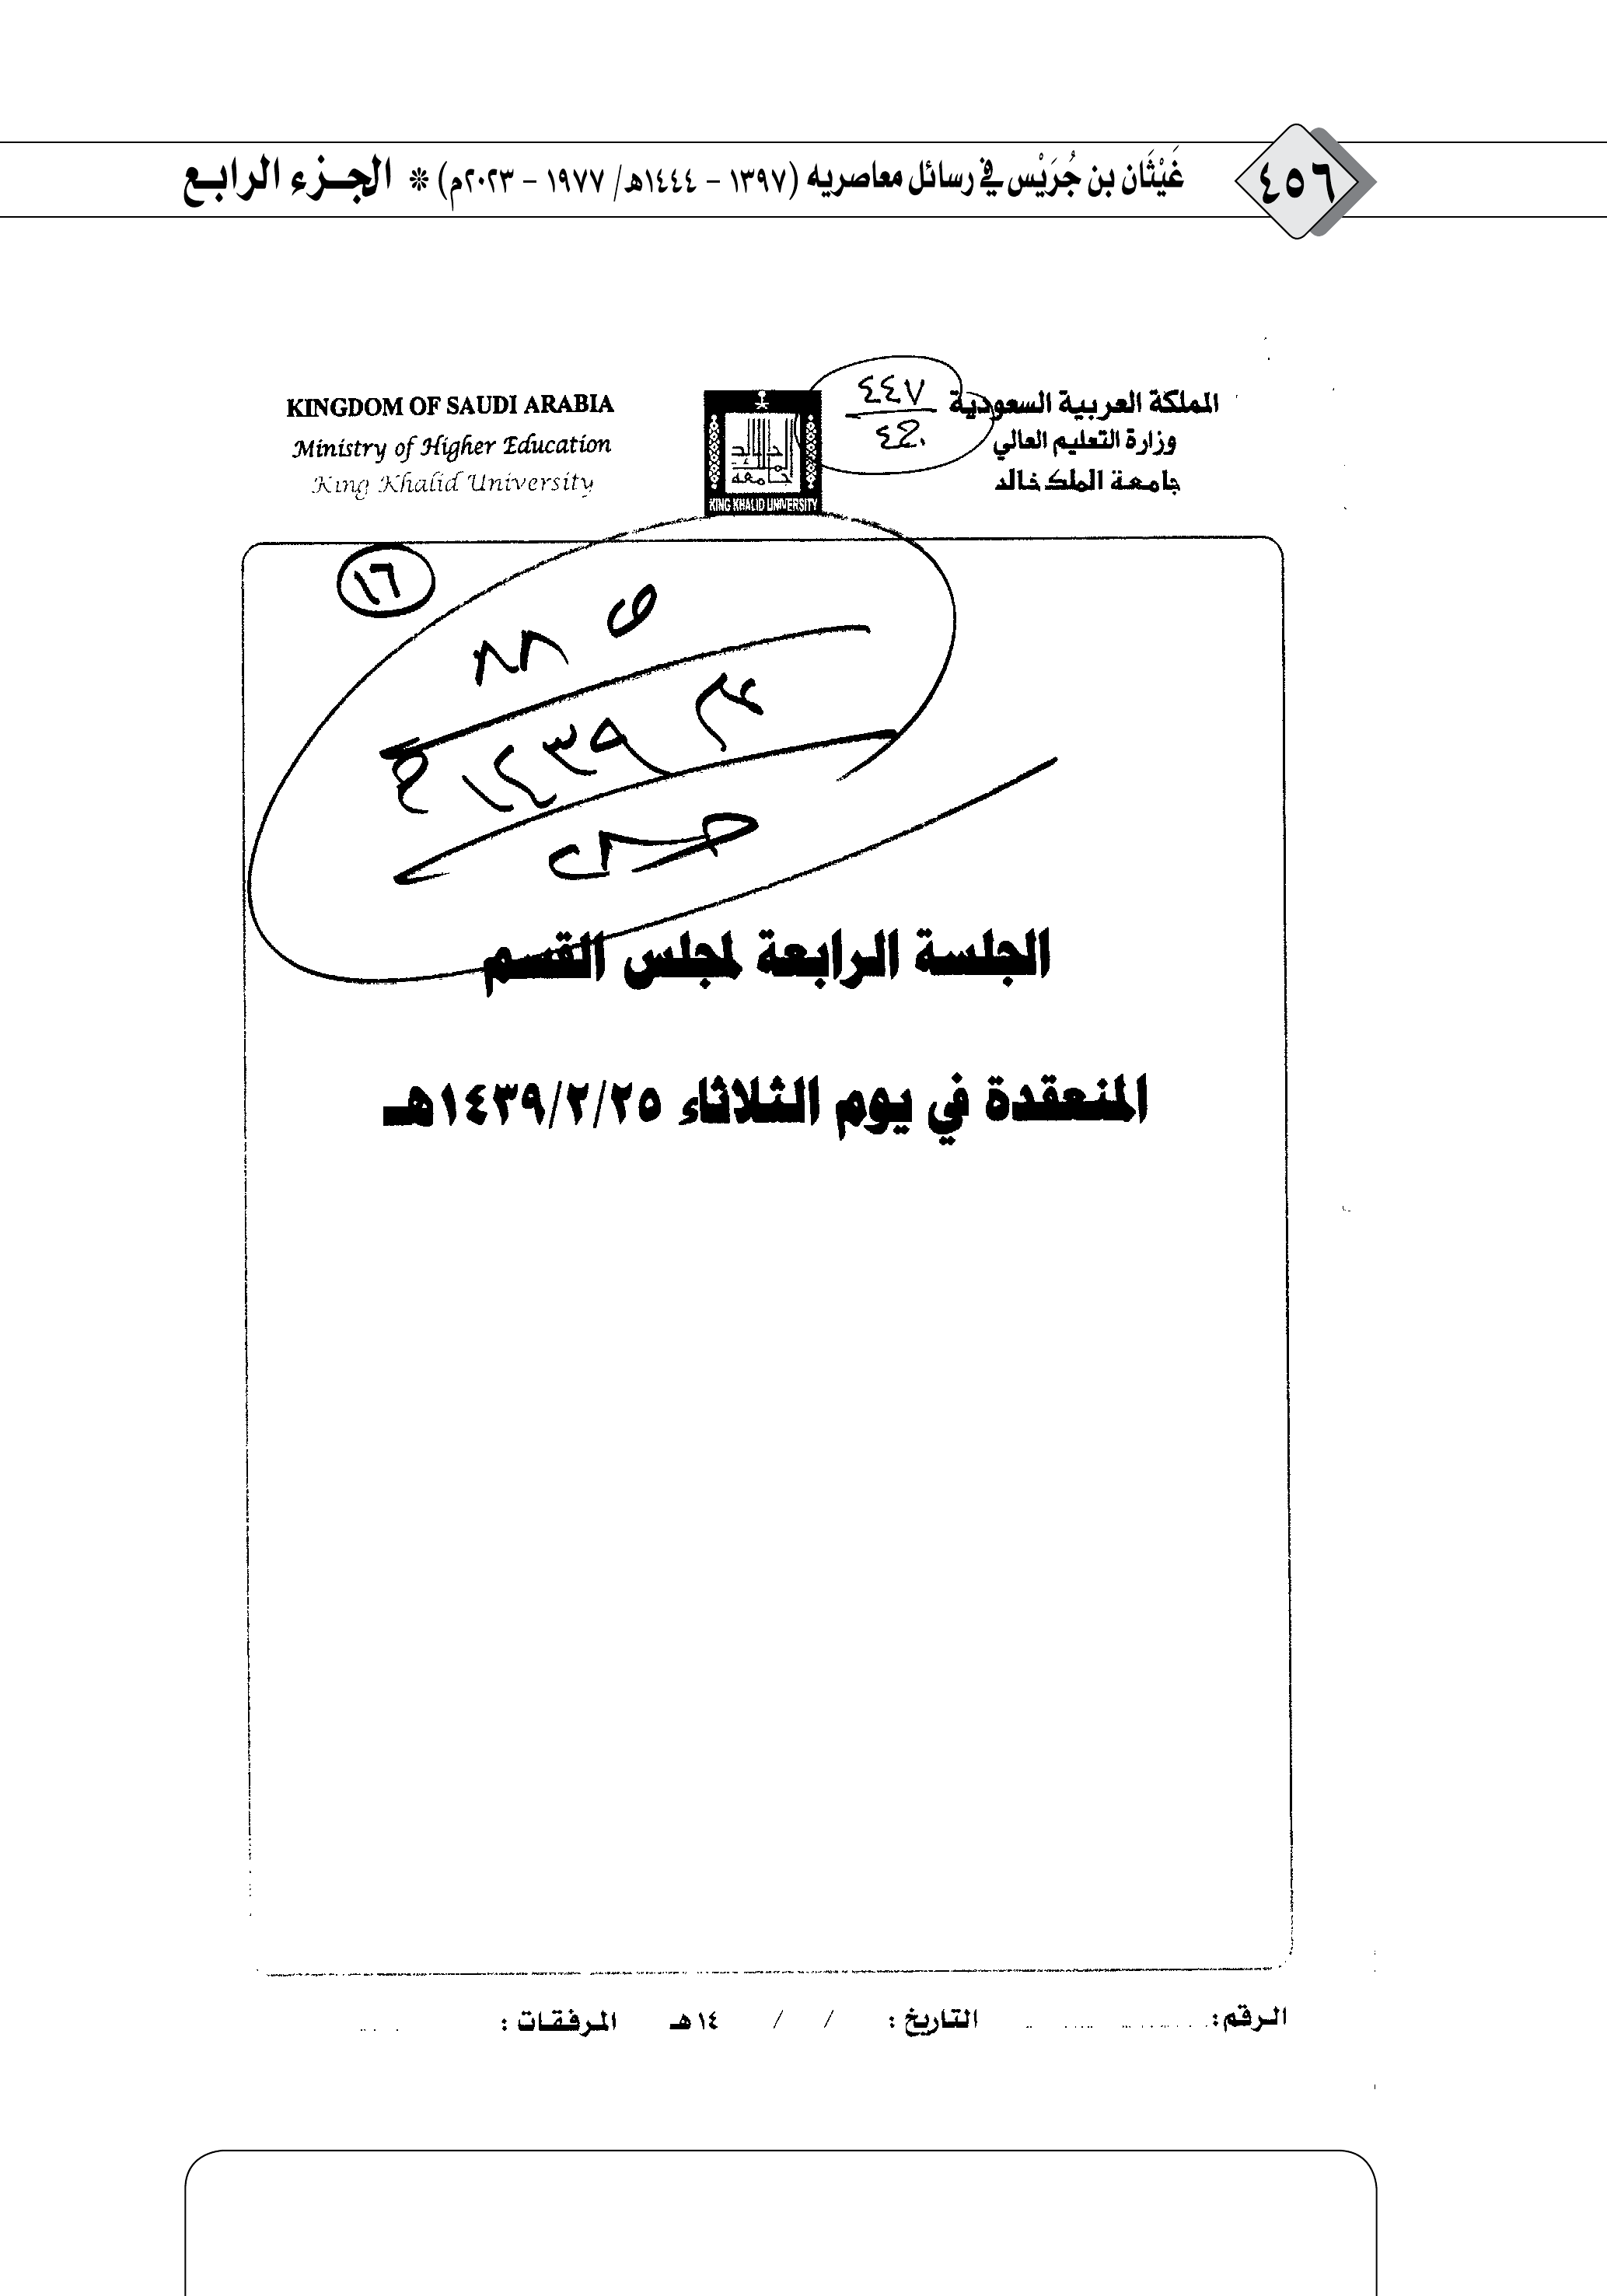 ٤٥٦
غَيْثَان بن جُرَيْس في رسائل معاصريه (١٣٩٧ - ١٤٤٤هـ/ ١٩٧٧ - ٢٠٢٣م) * الجـزء الرابـع
المملكة العربية السعودية
وزارة التعليم العالي
جامعة الملك خالد
٤٤٧
KING KHALID UNIVERSITY
KINGDOM OF SAUDI ARABIA
Ministry of Higher Education
King Khalid University
١٦
١٤٣٩
الجلسة الرابعة لمجلس القسم
المنعقدة في يوم الثلاثاء ١٤٣٩/٢/٢٥هـ
الرقم: التاريخ : / / ١٤هـ المرفقات :